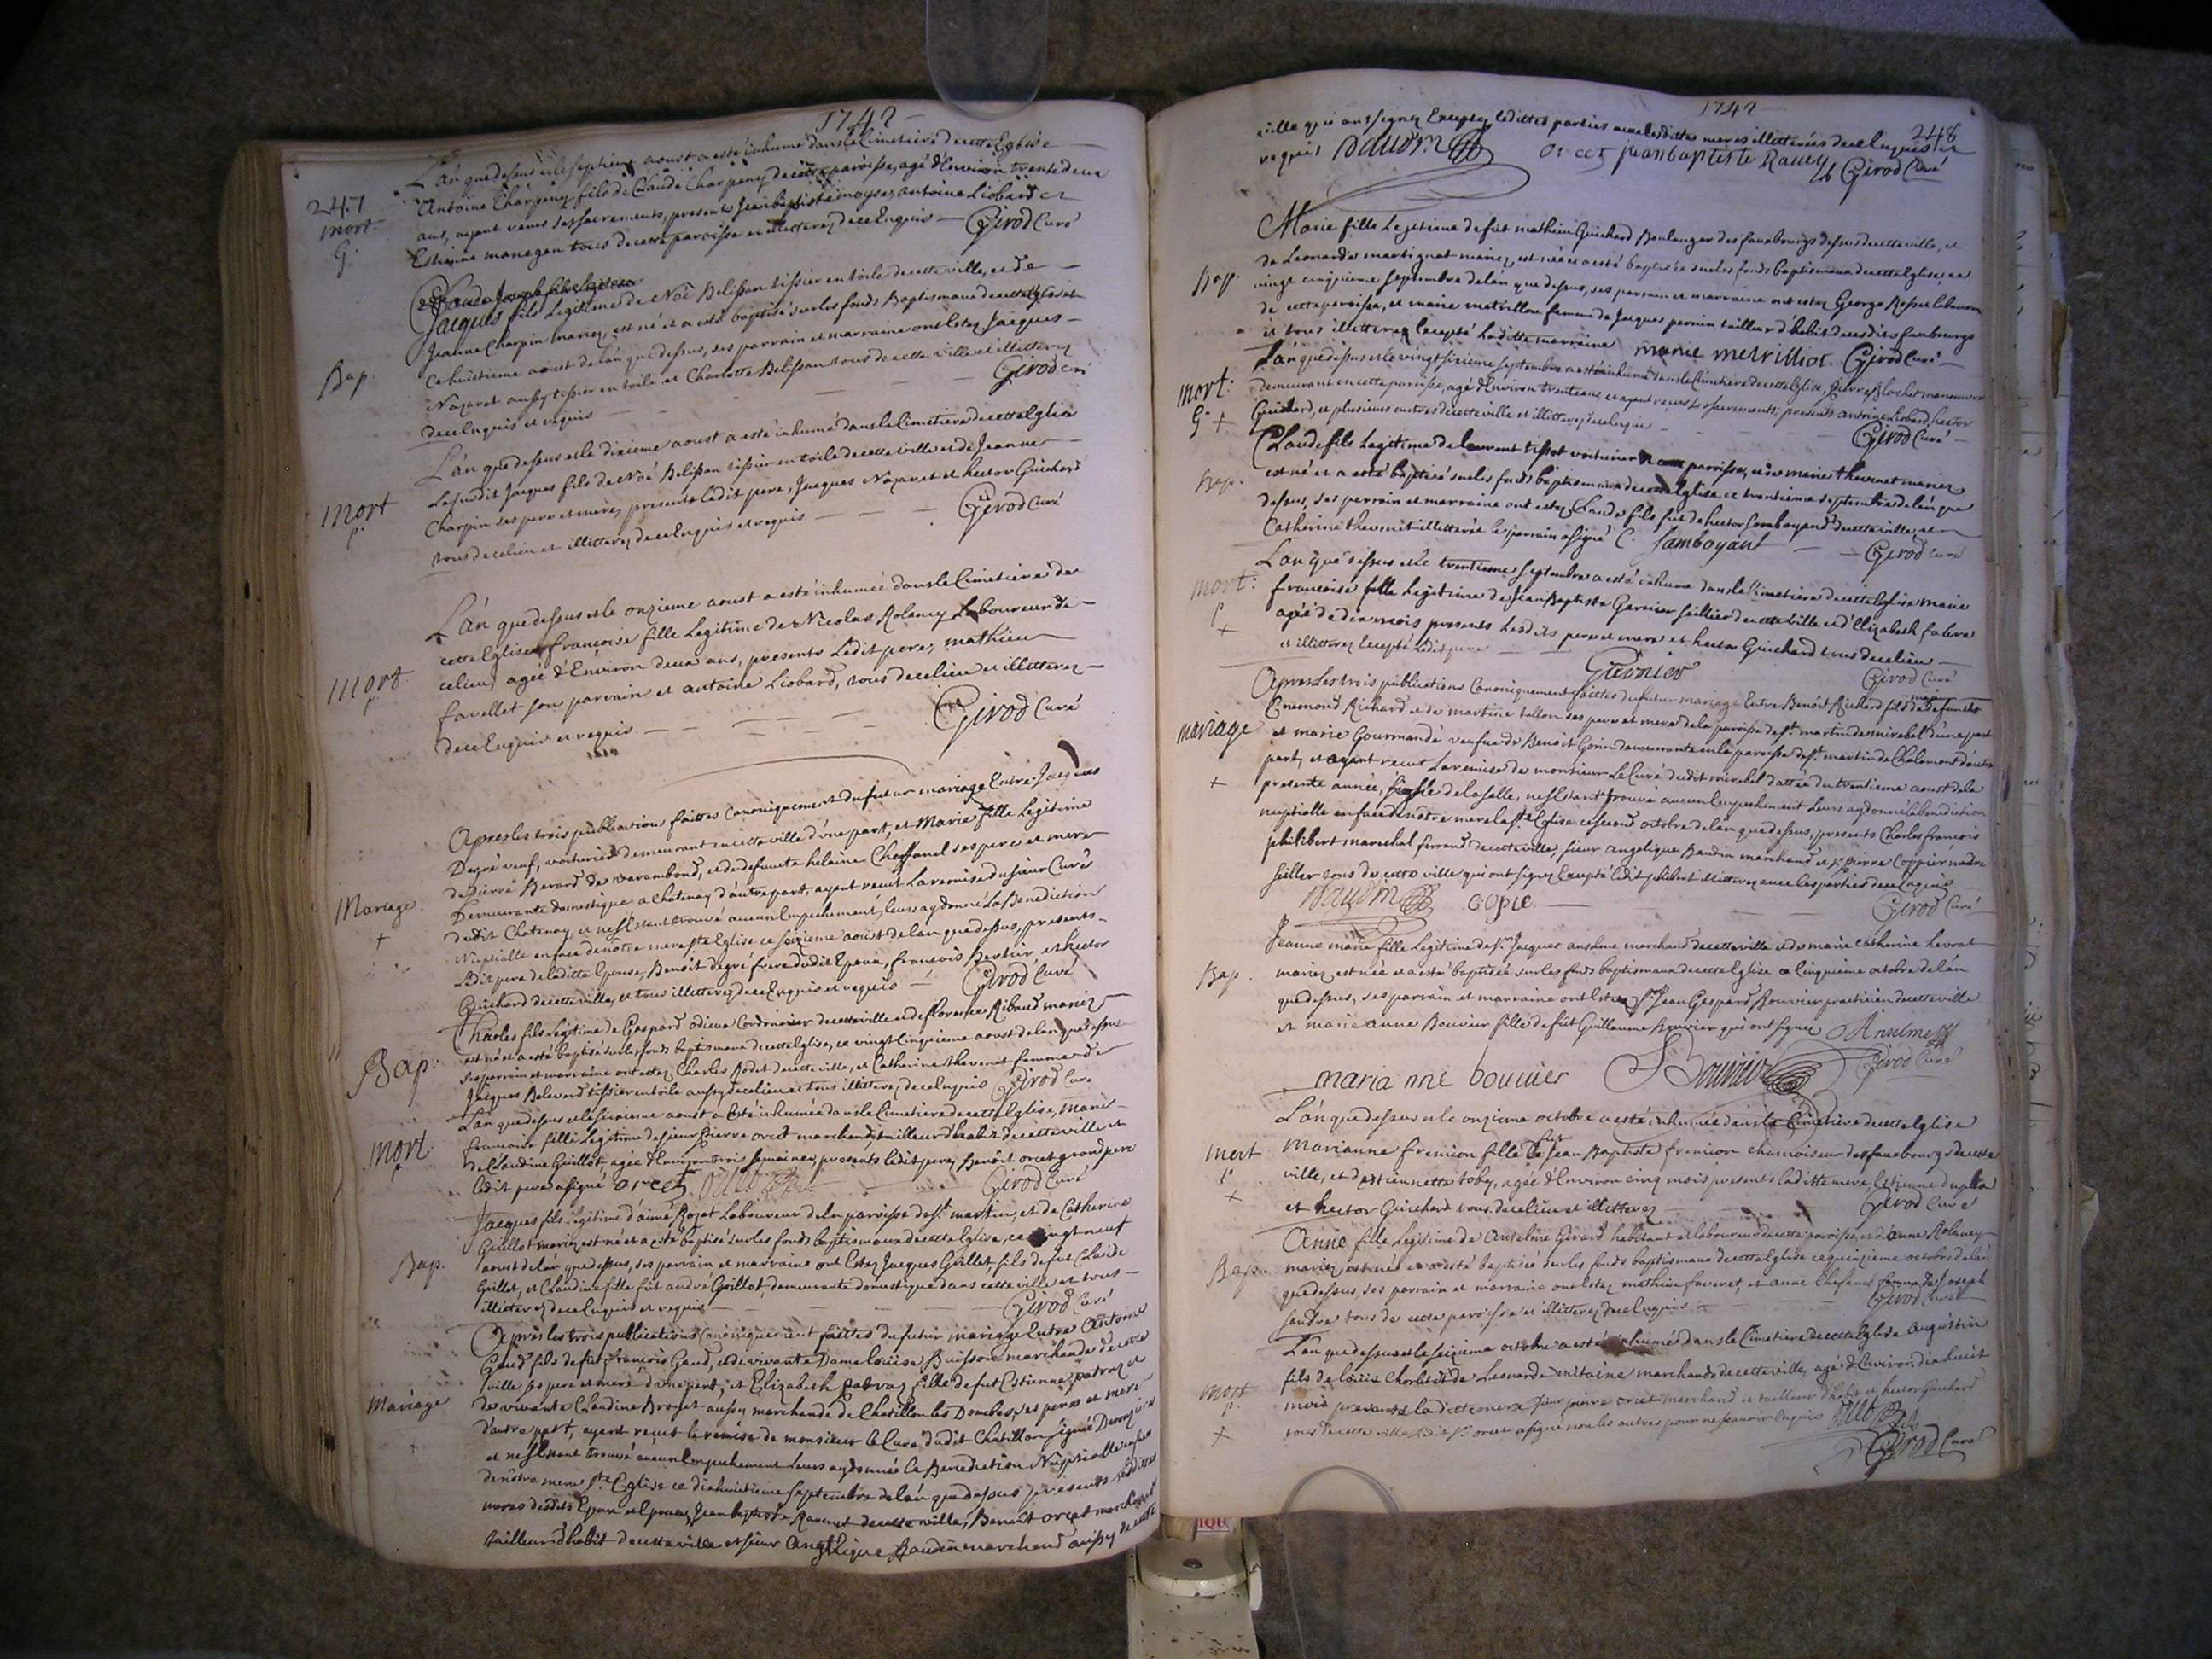 1742
247
mort
G.
L'an que dessus et le septieme aoust a esté inhumé dans le Cimetiere de cette Eglise
Antoine Charpeney fils de Claude Charpeney de cette paroisse, agé d'Environ trente deux
ans, ayant receus ses sacrements, presents Jean baptiste moyse, antoine Liobard et
Estienne manegan tous de cette paroisse et illitterez de ce Enquis — Girod Curé
Bap.
Claude Joseph fils legitime
Jacques fils Legitime de Noë Belissan tissier en toile de cette ville, et de
Jeanne Charpin mariez, est né et a esté baptisé sur les fonds Baptismaux de cette Eglise
ce huitieme aoust de l'an que dessus, ses parrain et marraine ont Estez Jacques
Nazaret aussy tissier en toile et Charlotte Belissan tous de cette ville et illitterez
de ce Enquis et requis — Girod Curé
mort
p.
L'an que dessus et le dixieme aoust a esté inhumé dans le Cimetiere de cette Eglise
Lesusdit Jacques fils de Noé Belissan tissier en toile de cette ville et de Jeanne
Charpin ses pere et mere, presents ledit pere, Jacques Nazaret et hector Guichard
tous de ce lieu et illitterez de ce Enquis et requis — Girod Curé
mort
p.
L'an que dessus et le onzieme aoust a esté inhumée dans le Cimetiere de
cette Eglise francoise fille Legitime de Nicolas Rolancy Laboureur de
ce lieu, agée d'Environ deux ans, presents Ledit pere, mathieu
favellet son parrain et antoine Liobard, tous de ce lieu et illitterez
de ce Enquis et requis — Girod Curé
Mariage
+
Apres les trois publications faittes Canoniquement du futur mariage Entre Jacques
Degré veuf, voiturier demeurant en cette ville d'une part, et Marie fille Legitime
de pierre Berard de varambond, et de defunte helaine Chaffanel ses pere et mere
Demeurante domestique a Chatenay d'autre part, ayant receu La remise du sieur Curé
dudit Chatenay, et ne s'Estant trouvé aucun Empechement, Leurs ay donné La Benediction
Nuptialle en face de nôtre mere ste Eglise ce seizieme aoust de l'an que dessus, presents
Ledit pere de laditte Epouse, Benoit degré frere dudit Epoux, francois Bertier, et hector
Guichard de cette ville, et tous illitterez de ce Enquis et requis — Girod Curé
Bap:
Charles fils Legitime de Gaspard odieux Cordonnier de cette ville et de florence Ribaud mariez
est né et a esté baptisé sur les fonds baptismaux de cette Eglise, ce vingt Cinquieme aoust de l'an que dessus
ses parrain et marraine ont estez Charles Rodet de cette ville, et Catherine thevenet femme de
Jacques Belevend tissier en toile aussy de ce lieu et tous illitterez de ce Enquis Girod Curé
mort
p
L'an que dessus et le sixieme aoust a esté inhumée dans le Cimetiere de cette Eglise, Marie
francoise fille Legitime de sieur Pierre orcet marchand tailleur d'habit de cette ville et
de Claudine Guillot, agée d'Environ trois semaines, presents ledit pere, Benoit orcet grand pere
ledit pere a signé orcet — Girod Curé
Bap.
Jacques fils Legitime d'aimé Rozat Laboureur de la paroisse de st martin, et de Catherine
Guillot mariez est né et a esté baptisé sur les fonds baptismaux de cette Eglise, ce vingt neuf
aoust de l'an que dessus, ses parrain et marraine ont Estez Jacques Guillet, fils de fut Claude
Guillet, et Claudine fille fut andré Guillot, demeurante domestique dans cette ville et tous
illitterez de ce Enquis et requis — Girod Curé
Mariage
+
Apres les trois publications Canoniquement faittes du futur mariage Entre Antoine
Gaud fils de fut francois Gaud, et de vivante Dame Loüise Buisson marchande de cette
ville ses pere et mere d'une part, et Elizabeth patraz fille de fut Estienne patraz et
de vivante Claudine Broyet aussy marchande de Chatillon les Dombes, ses peres et mere
d'autre part, ayant receut la remise de monsieur le Curé dudit Chatillon signée
et ne s'Estant trouvé aucun Empechement Leurs ay donné la Benediction Nuptialle en face
de nôtre mere ste Eglise ce dixhuitieme septembre de l'an que dessus presents Lesdittes
meres desdits Epoux et Epouse, Jean baptiste Ravet de cette ville, Benoit orcet marchand
tailleur d'habit de cette ville et sieur Angelique Baudin marchand aussy de cette
1742
248
ville qui ont signez Excepté lesdittes parties avec lesdittes meres illitterées de ce Enquis et
requis Baudin orcet jean baptiste Ravey Girod Curé
Bap.
Marie fille Legitime de fut mathieu Guichard Boulanger des fauxbourgs dessus de cette ville, et
de Leonarde martignat mariez, est née et a esté baptisée sur les fonds baptismaux de cette Eglise, ce
vingt cinquieme septembre de l'an que dessus, ses parrain et marraine ont estez George Rosset laboureur
de cette paroisse, et marie metrillon femme de Jacques perrin tailleur d'habit desdits fauxbourgs
et tous illitterez Excepté Laditte marraine marie metrilliot. Girod Curé
mort:
G +
L'an que dessus et le vingt sixieme septembre a esté inhumé dans le Cimetiere de cette Eglise, pierre Blochet manouvrier
demeurant en cette paroisse, agé d'Environ trente ans, et ayant receu Les sacrements, presents antoine Liobard, hector
Guichard, et plusieurs autres de cette ville et illitterez de ce Enquis — Girod Curé
Bap.
Claude fils Legitime de laurent tissot voiturier paroisse, et de marie thevenet mariez
est né et a esté baptisé sur les fonds baptismaux de cette Eglise ce trentieme septembre de l'an que
dessus, ses parrain et marraine ont estez Claude fils fut de hector Samboyand de cette ville, et
Catherine thevenet illitterée le parrain a signé C. Samboyant — Girod Curé
mort:
+
L'an que dessus et le trentieme septembre a esté inhumé dans le Cimetiere de cette Eglise Marie
francoise fille Legitime de Jean Baptiste Garnier seillier de cette ville et d'Elizabeth fabvre
agée de dix mois presents Lesdits pere et mere et hector Guichard tous de ce lieu
et illitterez Excepté Ledit pere — Garnier Girod Curé
mariage
+
Apres Les trois publications Canoniquement faittes du futur mariage Entre Benoit Richard fils majeur de defunts
Enemond Richard et de martine tollon ses pere et mere de la paroisse de st martin de mirebel d'une part
et marie Gourmande veufue de Benoit Gonin demeurante en la paroisse de st martin de Chalamont d'autre
part, et ayant receut La remise de monsieur Le Curé dudit mirebel dattée du trentieme aoust de la
presente année, signée de la salle, ne s'Estant trouvé aucun Empechement Leurs ay donné la benediction
nuptialle en face de notre mere la ste Eglise ce second octobre de l'an que dessus, presents Charles francois
philibert marechal ferrand de cette ville, sieur angelique Baudin marchand et sr pierre Coppier
seillier tous de cette ville qui ont signez Excepté ledit philibert illitterez avec les parties de ce Enquis
Baudin copie — Girod Curé
Bap.
Jeanne marie fille Legitime de sr Jacques anselme marchand de cette ville et de marie catherine Levrat
mariez est née et a esté baptisée sur les fonds baptismaux de cette Eglise ce Cinquieme octobre de l'an
que dessus, ses parrain et marraine ont Estez sr Jean Gaspard Bouvier practicien de cette ville
et marie anne Bouvier fille de fut Guillaume Bouvier qui ont signez Anselme
maria nne bouuier Bouvier Girod Curé
mort
+
L'an que dessus et le onzieme octobre a esté inhumée dans le Cimetiere de cette Eglise
Marianne fremion fille de fut Jean Baptiste fremion chamoiseur des fauxbourgs de cette
ville, et d'Estiennette toby, agée d'Environ cinq mois presents Laditte mere, Estienne
et hector Guichard tous de ce lieu et illitterez — Girod Curé
Bap.
Anne fille Legitime de Anselme Girard habitant et laboureur de cette paroisse, et d'anne Rolancy
mariez, est née et a esté baptisée sur les fonds baptismaux de cette Eglise ce quinzieme octobre de l'an
que dessus, ses parrain et marraine ont Estez mathieu faveret, et anne femme de Joseph
Sandre tous de cette paroisse et illitterez de ce Enquis — Girod Curé
mort
p.
+
L'an que dessus et le seizieme octobre a esté inhumé dans le Cimetiere de cette Eglise augustin
fils de Loüis Chorlet et de Leonarde mitaine marchands de cette ville, agé d'Environ dix huit
mois presents Laditte mere sieur pierre orcet marchand et tailleur d'habit et hector Guichard
tous de cette ville Ledit sr orcet a signé non les autres pour ne scavoir Enquis
Girod Curé